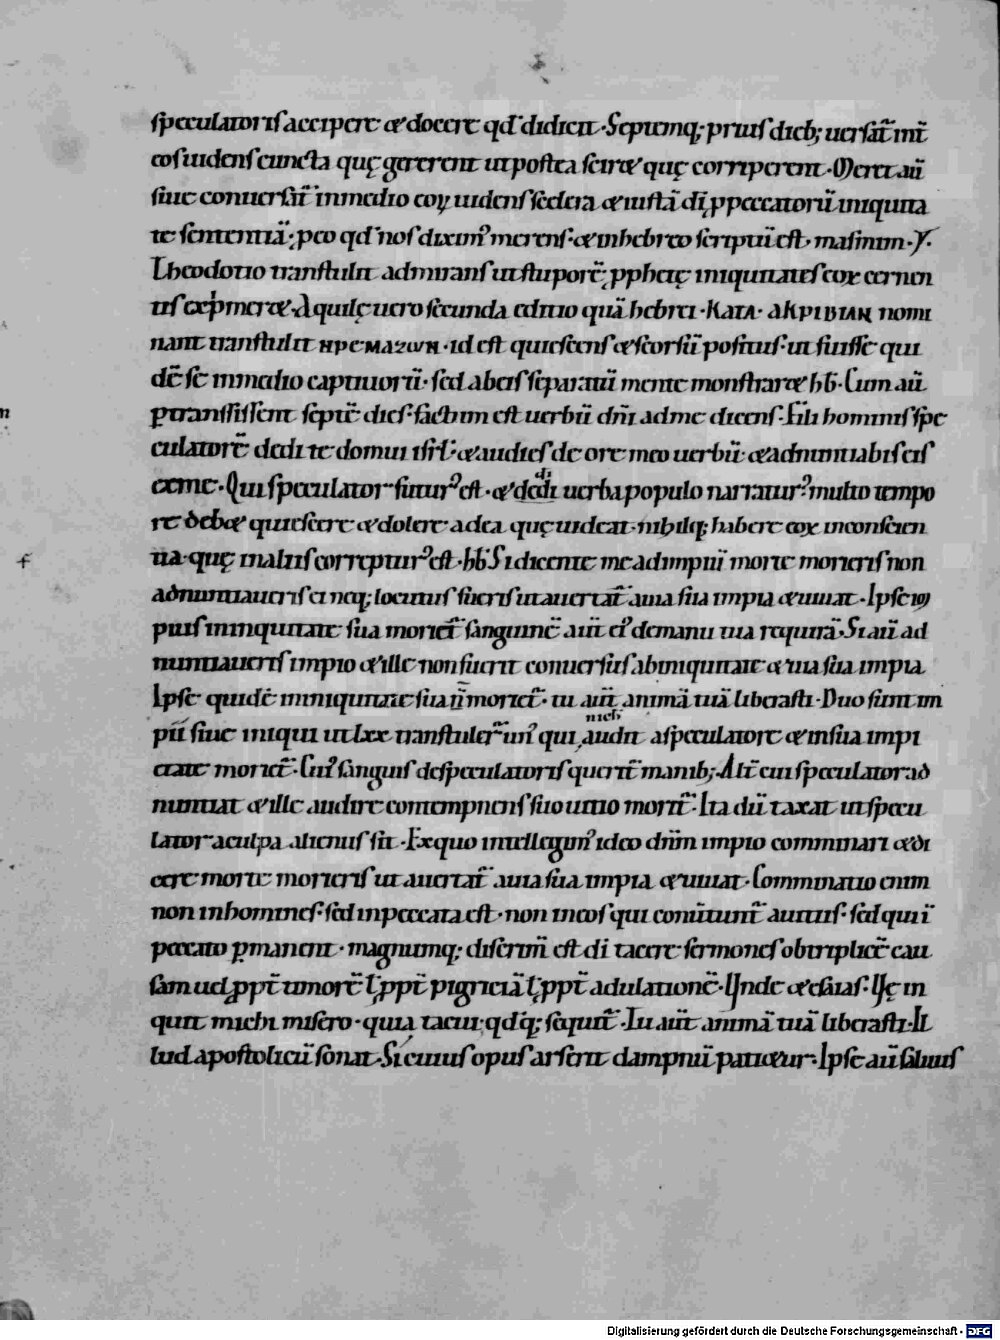 speculatoris accipere & docere qđ didicit. Septemq; prius dieb; uersat̄ int̄
eos uidens cuncta quę gererent ut postea sciret quę corriperent. Meret aū
siue conuersat̄ in medio eoꝝ uidens scelera & iustā dī ꝓ peccatorū iniquita
te sententiā; ꝓ eo qđ nos dixim᾽ merens. & in hebreo scriptū est. masmim. Y.
Theodotio transtulit admirans ut stuporē, ꝓphetę iniquitates eoꝝ cernen
tis exprimeret. Aquilę uero secunda editio quā hebrei. ΚΑΤΑ. ΑΚΡΙΒΙΑΝ nomi
nant transtulit ΗΡΕΜΑΖωΝ. id est quiescens & seorsū positus. ut fuisse qui
dē se in medio captiuorū. sed ab eis separatū mente monstraret. hƀ. Cum aū
ꝑtransissent septē dies. factum est uerbū dn̄i ad me dicens. Fili hominis spe
culatorē dedi te domui isrł. & audies de ore meo uerbū. & adnuntiabis eis
ex me. Qui speculator futur᾽ est. & dedi di uerba populo narratur᾽ multo tempo
re debet quiescere & dolere ad ea quę uideat. nihilq; habere eoꝝ in conscien
tia. quę in aliis correptur᾽ est. hƀ. Si dicente me ad impiū morte morieris non
adnuntiaueris ei neq; locutus fueris ut auertat̄ a uia sua impia & uiuat. Ipse im
pius in iniquitate sua moriet̄ sanguinē aut̄ ei᾽ de manu tua requirā. Si aū ad
nuntiaueris impio & ille non fuerit conuersus ab iniquitate & uia sua impia
Ipse quidē in iniquitate sua n̄ moriet̄. tu aut̄ animā tuā liberasti. Duo sunt im
pii siue iniqui ut lxx transtuler̄ un᾽ qui nich audit a speculatore & in sua impi
etate moriet̄. Cui᾽ sanguis de speculatoris querit̄ manib; Alt̄ cui speculator ad
nuntiat & ille audire contempnens suo uitio morit̄. Ita dū taxat ut specu
lator a culpa alienus sit. Ex quo intellegim᾽ ideo dn̄m impio comminari & di
cere morte morieris ut auertat̄ a uia sua impia & uiuat. Comminatio enim
non in homines. sed in peccata est. non in eos qui conūtunt̄ a uitiis. sed qui ī
peccato ꝑmanent. magnumq; discrim̄ est dī tacere sermones ob triplicē cau
sam uel ꝓpt̄ timorē ł ꝓpt̄ pigriciā ł ꝓpt̄ adulationē. Unde & esaias. Uę in
quit michi misero. quia tacui; qđq; sequit̄. Tu aut̄ animā tuā liberasti. Il
lud apostolicū sonat. Si cuius opus arserit dampnū patietur. Ipse aū saluus
Digitalisierung gefördert durch die Deutsche Forschungsgemeinschaft - DFG